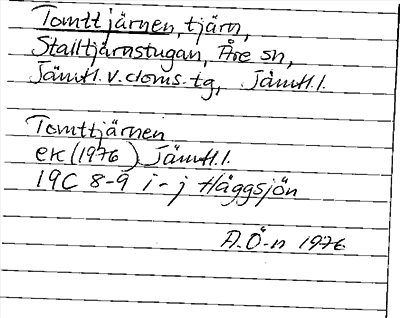 Tomttjärnen, tjärn,
Stalltjärnstugan, Åre sn,
Jämtl. v. doms. tg, Jämtl. l.
Tomttjärnen
ek (1976) Jämtl. l.
19C 8-9 i-j Häggsjön
A. Ö-n 1976